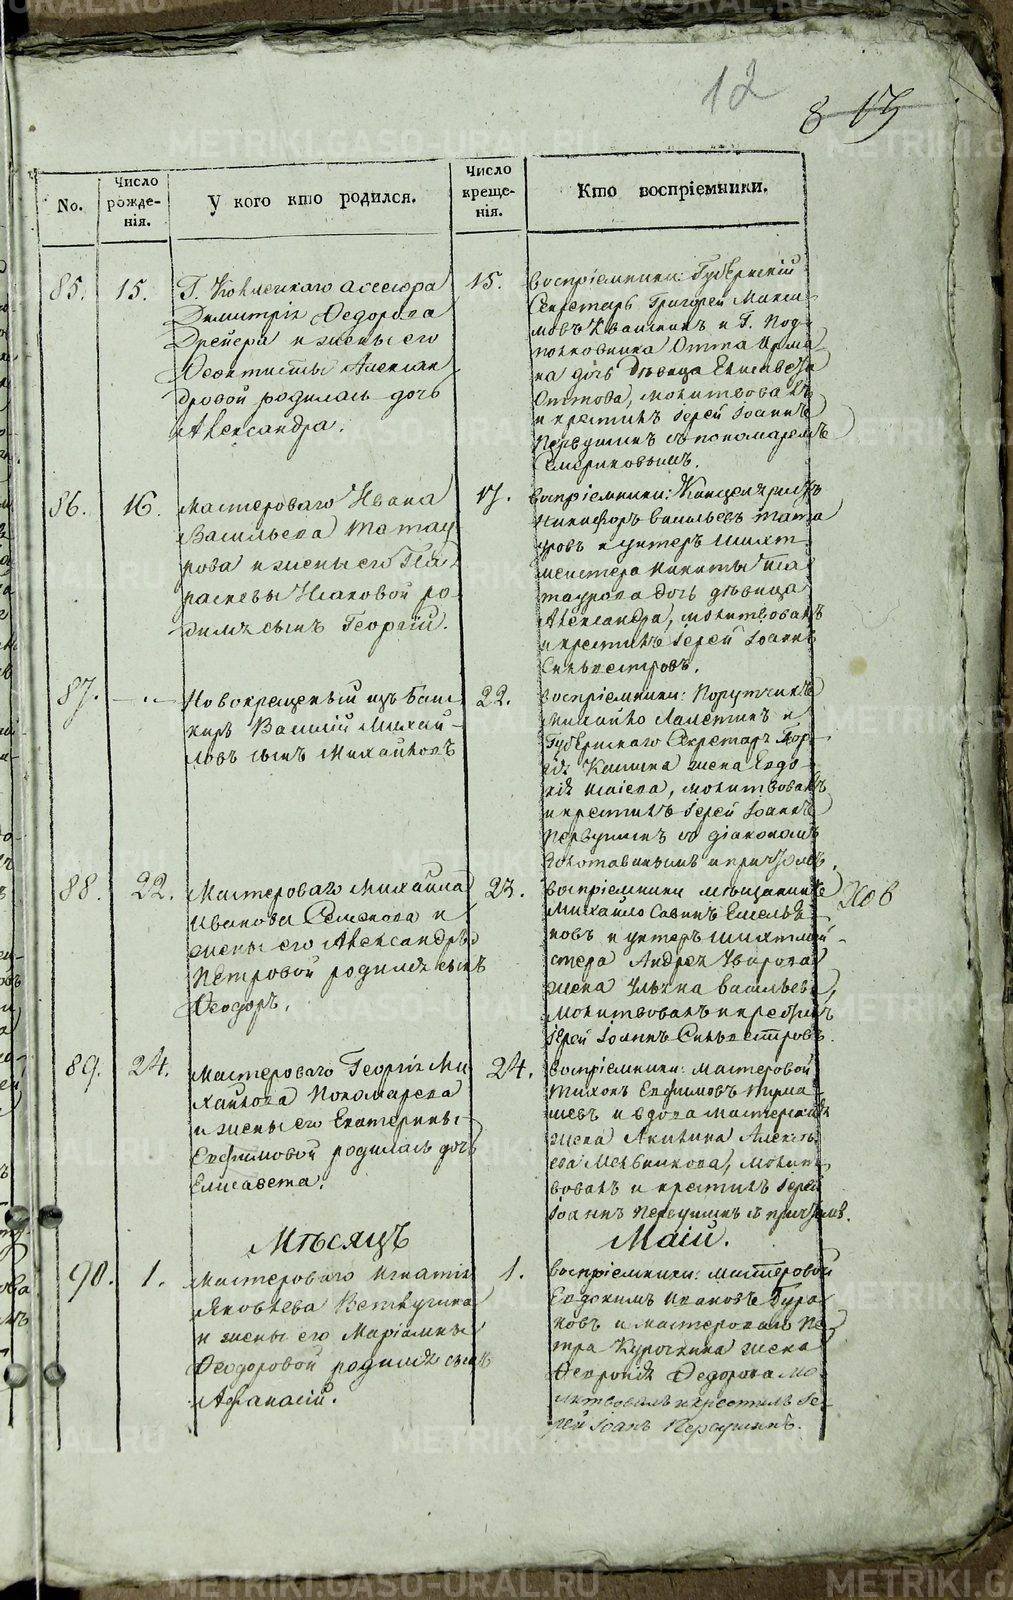 12
8 17
No.
Число рожде-нія.
У кого кто родился.
Число креще-нія.
Кто воспріемники.
85. 15.
Г. Коллежскаго асессора
Димитрія Федорова
Дрейера и жены его
Феоктисты Алексан
дровой родилась дочь
Александра.
15.
воспріемники: Губернскій
Секретарь Григорей Макси
мовъ и Г. Под-
полковника Отта
на дочь дѣвица Елисавета
Оттова, молитвовалъ
и крестилъ Іерей Іоаннъ
Первушинъ съ пономаремъ
86. 16.
мастероваго Ивана
Васильева Татау
рова и жены его Па
раскевы Исаковой ро
дился сынъ Георгій.
17.
воспріемники: Канцеляристъ
Никифоръ Васильевъ Тата
уровъ и унтеръ шихт
мейстера Никиты Та
таурова дочь дѣвица
Александра, молитвовалъ
и крестилъ Іерей Іоаннъ
Сильвестровъ.
87.
Новокрещеный изъ баш
киръ Василій Михай-
ловъ сынъ Михайловъ
22.
воспріемники: Порутчикъ
Михайло и
Губернскаго Секретаря
жена Евдо-
кія, молитвовалъ
и крестилъ Іерей Іоаннъ
Первушинъ съ діакономъ
и причтомъ.
88. 22.
Мастероваго Михайла
Иванова Семенова и
жены его Александры
Петровой родился сынъ
Феодоръ.
23.
воспріемники мѣщанинъ
Михайло Саввинъ Емелья
новъ и унтеръ шихтмей-
стера Андрея Уварова
жена Ульяна Васильева,
молитвовалъ и крестилъ
Іерей Іоаннъ Сильвестровъ.
89. 24.
Мастероваго Георгія Ми
хайлова Пономарева
и жены его Екатерины
Евфимовой родилась дочь
Елисавета.
24.
воспріемники: мастеровой
Тихонъ Евфимовъ
и вдова мастерская
жена Акилина Алексѣ
ева Мельникова, молит
вовалъ и крестилъ Іерей
Іоаннъ Первушинъ съ причтомъ.
Мѣсяцъ Маій.
90. 1.
Мастероваго Игнатія
Яковлева Ветлугина
и жены его Маріамны
Феодоровой родился сынъ
Афанасій.
1.
воспріемники: мастеровой
Евдокимъ Ивановъ
и мастероваго Пе
тра Курочкина жена
Февронія Федорова мо
литвовалъ и крестилъ Іе-
рей Іоаннъ Первушинъ.